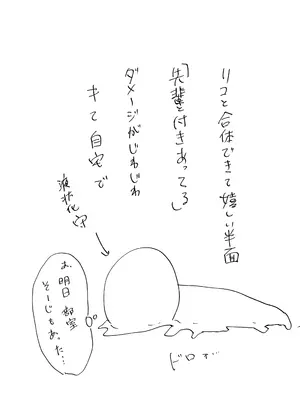 リコと合体できて嬉しい半面
「先輩と付きあってる」
ダメージがじわじわ
キて自宅で
液状化守
お、明日 部室
そーじもあった…
ドロォ…